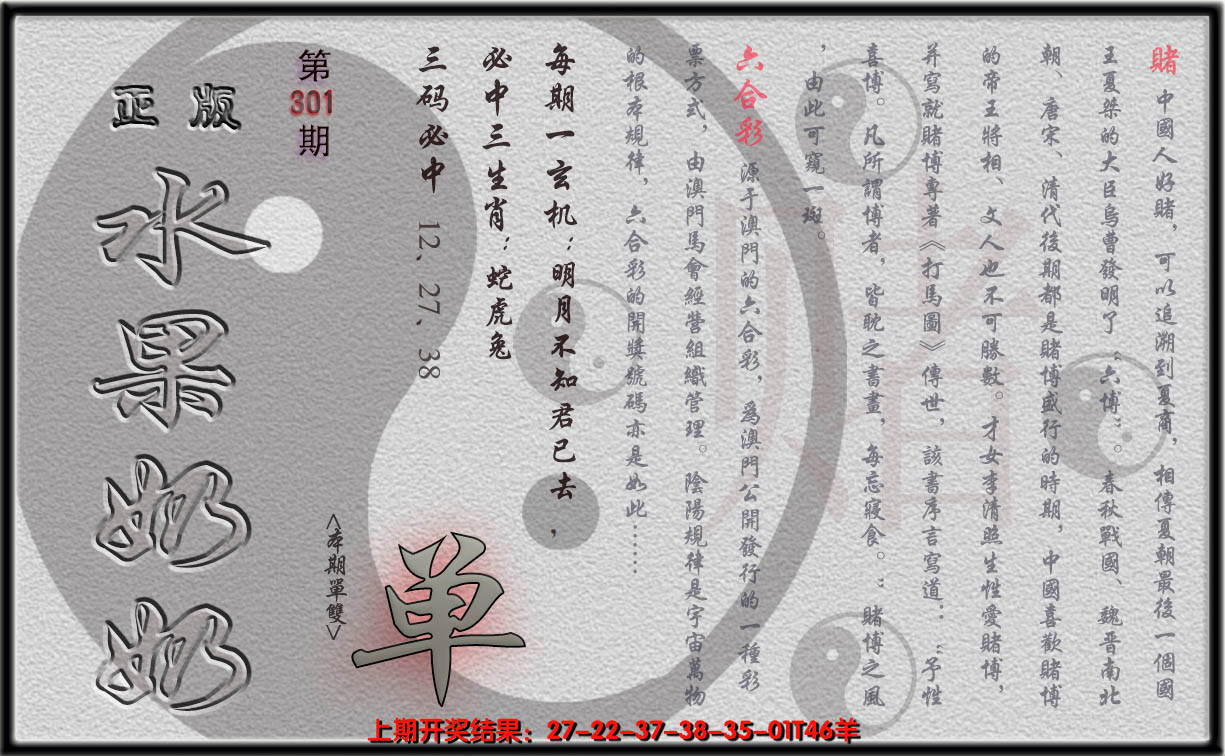 賭 中國人好賭，可以追溯到夏商，相傳夏朝最後一個國
王夏桀的大臣烏曹發明了“六博”。春秋戰國、魏晋南北
朝、唐宋、清代後期都是賭博盛行的時期，中國喜歡賭博
的帝王將相、文人也不可勝數。才女李清照生性愛賭博，
并寫就賭博專著《打馬圖》傳世，該書序言寫道：“予性
喜博。凡所謂博者，皆耽之書畫，每忘寢食。”賭博之風
，由此可窺一斑。
六合彩 源于澳門的六合彩，爲澳門公開發行的一種彩
票方式，由澳門馬會經營組織管理。陰陽規律是宇宙萬物
的根本規律，六合彩的開獎號碼亦是如此……
每期一玄机：明月不知君已去，
必中三生肖：蛇虎兔
三码必中 12、27、38
第
301
期
<本期單雙>
单
正版
水果奶奶
赌
上期开奖结果：27-22-37-38-35-01T46羊